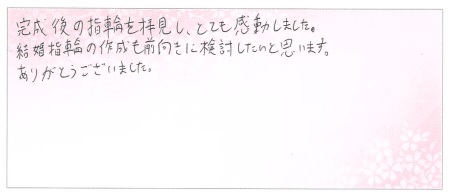 完成後の指輪を拝見し、とても感動しました。
結婚指輪の作成も前向きに検討したいと思います。
ありがとうございました。